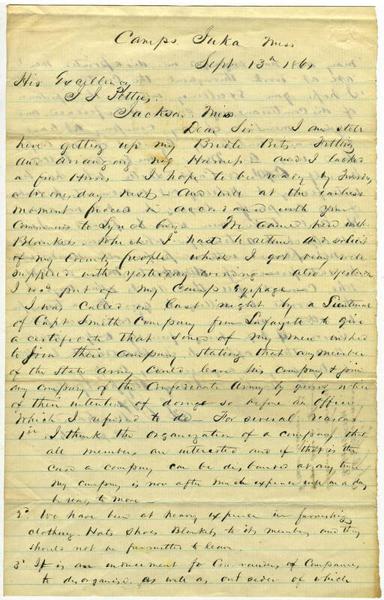 Camp Iuka Miss
Sept 13th 1861
His Excellency
J J Pettus
Jackson Miss
Dear Sir I am still
here getting up my Bridle Bits Fitting
and arranging my Harness and I lack
a few Horses I hope to be ready by Tuesday
or Wednesday next and will at the earliest
moment proceed in accordance with your
Commands to Lynchburg We came here with
Blankets which I had to return
of my County people what I got was
supplied with yesterday evening also yesterday
I recd part of my Camp Equipage
I was called on Last night by a Lieutenant
of Capt Smith Company from Lafayette to give
a certificate that some of my men wished
to join their company stating that any member
of the State Army could leave his company & join
any company of the Confederate Army by giving notice
of their intention of doing so before an Officer
Which I refused to do For several reasons
1st I think the Organization of a company that
all members are interested and if that is the
case a company can be disbanded at any time
My company is now after much expense in a day
be ready to move
2d We have been at heavy expense in furnishing
clothing Hats Shoes Blankets to its members and they
should not be permitted to leave
3d It is an inducement for Companies
to disorganise as well as out side of which